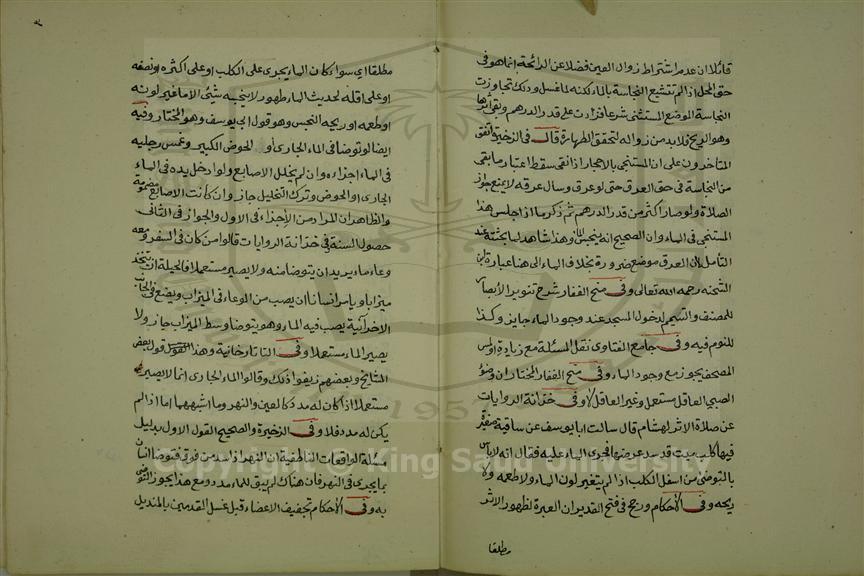 قائلا ان عدم اشتراط زوال العين فضلا عن الرائحة انما هو في
حق المحل اذا لم تتشبع النجاسة بالماء لكنه لما غسل ودلك تجاوزت
النجاسة الموضع المستثنى شرعا فزادت على قدر الدرهم وبقي اثرها
وهو الريح فلا بد من زواله لتحقق الطهارة قال في الذخيرة اتفق
المتاخرون على ان المستنجي بالاحجار اذا نقى سقط اعتبار ما بقي
من النجاسة في حق العرق حتى لو عرق وسال عرقه لا يمنع جواز
الصلاة ولو صار اكثر من قدر الدرهم ثم ذكر ما اذا جلس هذا
المستنجي في الماء وان الصحيح انه ينجس الماء وهذا شاهد لما بحثته عند
التامل لان العرق موضع ضرورة بخلاف الماء الى هنا عبارة ابن
الشحنه رحمه الله تعالى وفي منح الغفار شرح تنوير الابصار
للمصنف والتيمم لدخول المسجد عند وجود الماء جايز وكذا
للنوم فيه وفي جامع الفتاوى نقل المسئلة مع زيادة او لمس
المصحف يجوز مع وجود الماء وفي منح الغفار المختار ان وضوء
الصبي العاقل مستعمل وغير العاقل لا وفي خزانة الروايات
عن صلاة الاثر لهشام قال سالت ابا يوسف عن ساقية صغيرة
فيها كلب ميت قد سد عرضها فجرى الماء عليه فقال انه لا باس
بالتوضئ من اسفل الكلب اذا لم يتغير لون الماء ولا طعمه ولا
ريحه وفي الاحكام ورجح في فتح القدير ان العبرة لظهور الاثر
مطلقا
مطلقا اي سواء كان الماء يجري على الكلب او على اكثره او نصفه
او على اقله لحديث الماء طهور لا ينجسه شئ الا ما غير لونه
او طعمه او ريحه النجس وهو قول ابي يوسف وهو المختار وفيه
ايضا لو توضا في الماء الجاري او الحوض الكبير وغمس رجليه
في الماء اجزاه وان لم يخلل الاصابع ولو ادخل يده في الماء
الجاري او الحوض وترك التخليل جاز وان كانت الاصابع مضمومة
والظاهر ان المراد من الاجزاء في الاول والجواز في الثاني
حصول السنة في خزانة الروايات قالوا من كان في السفر ومعه
وعاء ماء يريد ان يتوضا منه ولا يصير مستعملا فالحيلة ان يتخذ
ميزابا ويامر انسانا ان يصب من الوعاء في الميزاب ويضع في الجانب
الاخر آنية يصب فيه الماء وهو يتوضا وسط الميزاب جاز ولا
يصير الماء مستعملا وفي التاتارخانية وهذا القول قول بعض
المشايخ وبعضهم زيفوا ذلك وقالوا الماء الجاري انما لا يصير
مستعملا اذا كان له مدد كالعين والنهر وما اشبههما اما اذا لم
يكن له مدد فلا وفي الذخيرة والصحيح القول الاول بدليل
مسئلة الواقعات الناطفية ان النهر اذا سد من فوق فتوضا انسان
بما يجري في النهر فان هناك لم يبق للماء مدد ومع هذا يجوز التوضي
به وفي الاحكام تجفيف الاعضاء قبل غسل القدمين بالمنديل
Copyright © King Saud University
1957